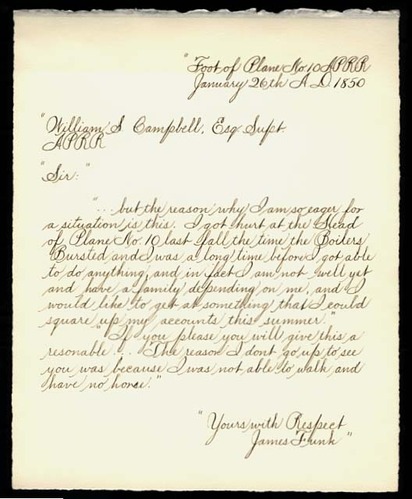 "Foot of Plane No. 10 APRR
January 26th A.D. 1850
"William S Campbell, Esq Supt.
APRR
"Sir:
"... but the reason why I am so eager for
a situation is this. I got hurt at the Head
of Plane No. 10 last fall the time the Boilers
Bursted and I was a long time before I got able
to do anything and in fact I am not well yet
and have a family depending on me, and I
would like to get at something that I could
square up my accounts this summer."
If you please you will give this a
resonable ... "The reason I dont go up to see
you was because I was not able to walk and
have no horse."
"Yours with Respect
James Funk"